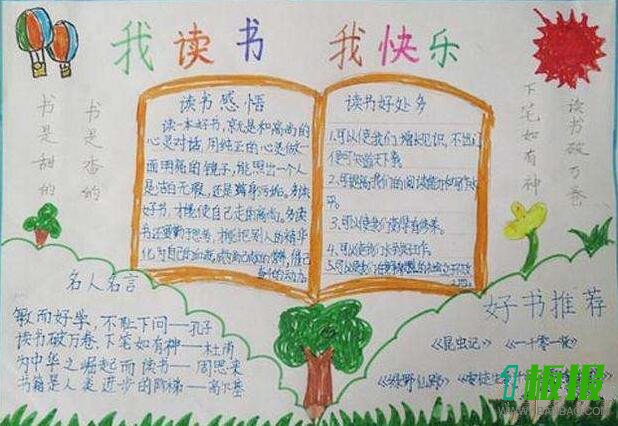 我读书 我快乐
书是甜的
书是香的
读书感悟
读一本好书,就是和高尚的
心灵对话,用纯正的心灵做一
面明亮的镜子,能照出一个人
是洁白无瑕,还是
好书,才能使自己走向高尚。多读
书还要勤于思考,才能把别人的精华
化为自己的
读书好处多
1.可以使我们增长见识,不出门
便可知道天下事。
2.可提高我们的阅读能力和写作水
平。
3.可以使我们变得有修养。
4.可以使我们
5.可以使我们
读书破万卷
下笔如有神
名人名言
敏而好学,不耻下问——孔子
读书破万卷,下笔如有神——杜甫
为中华之崛起而读书——周恩来
书籍是人类进步的阶梯——高尔基
好书推荐
《昆虫记》 《一千零一夜》
《绿野仙踪》
板报